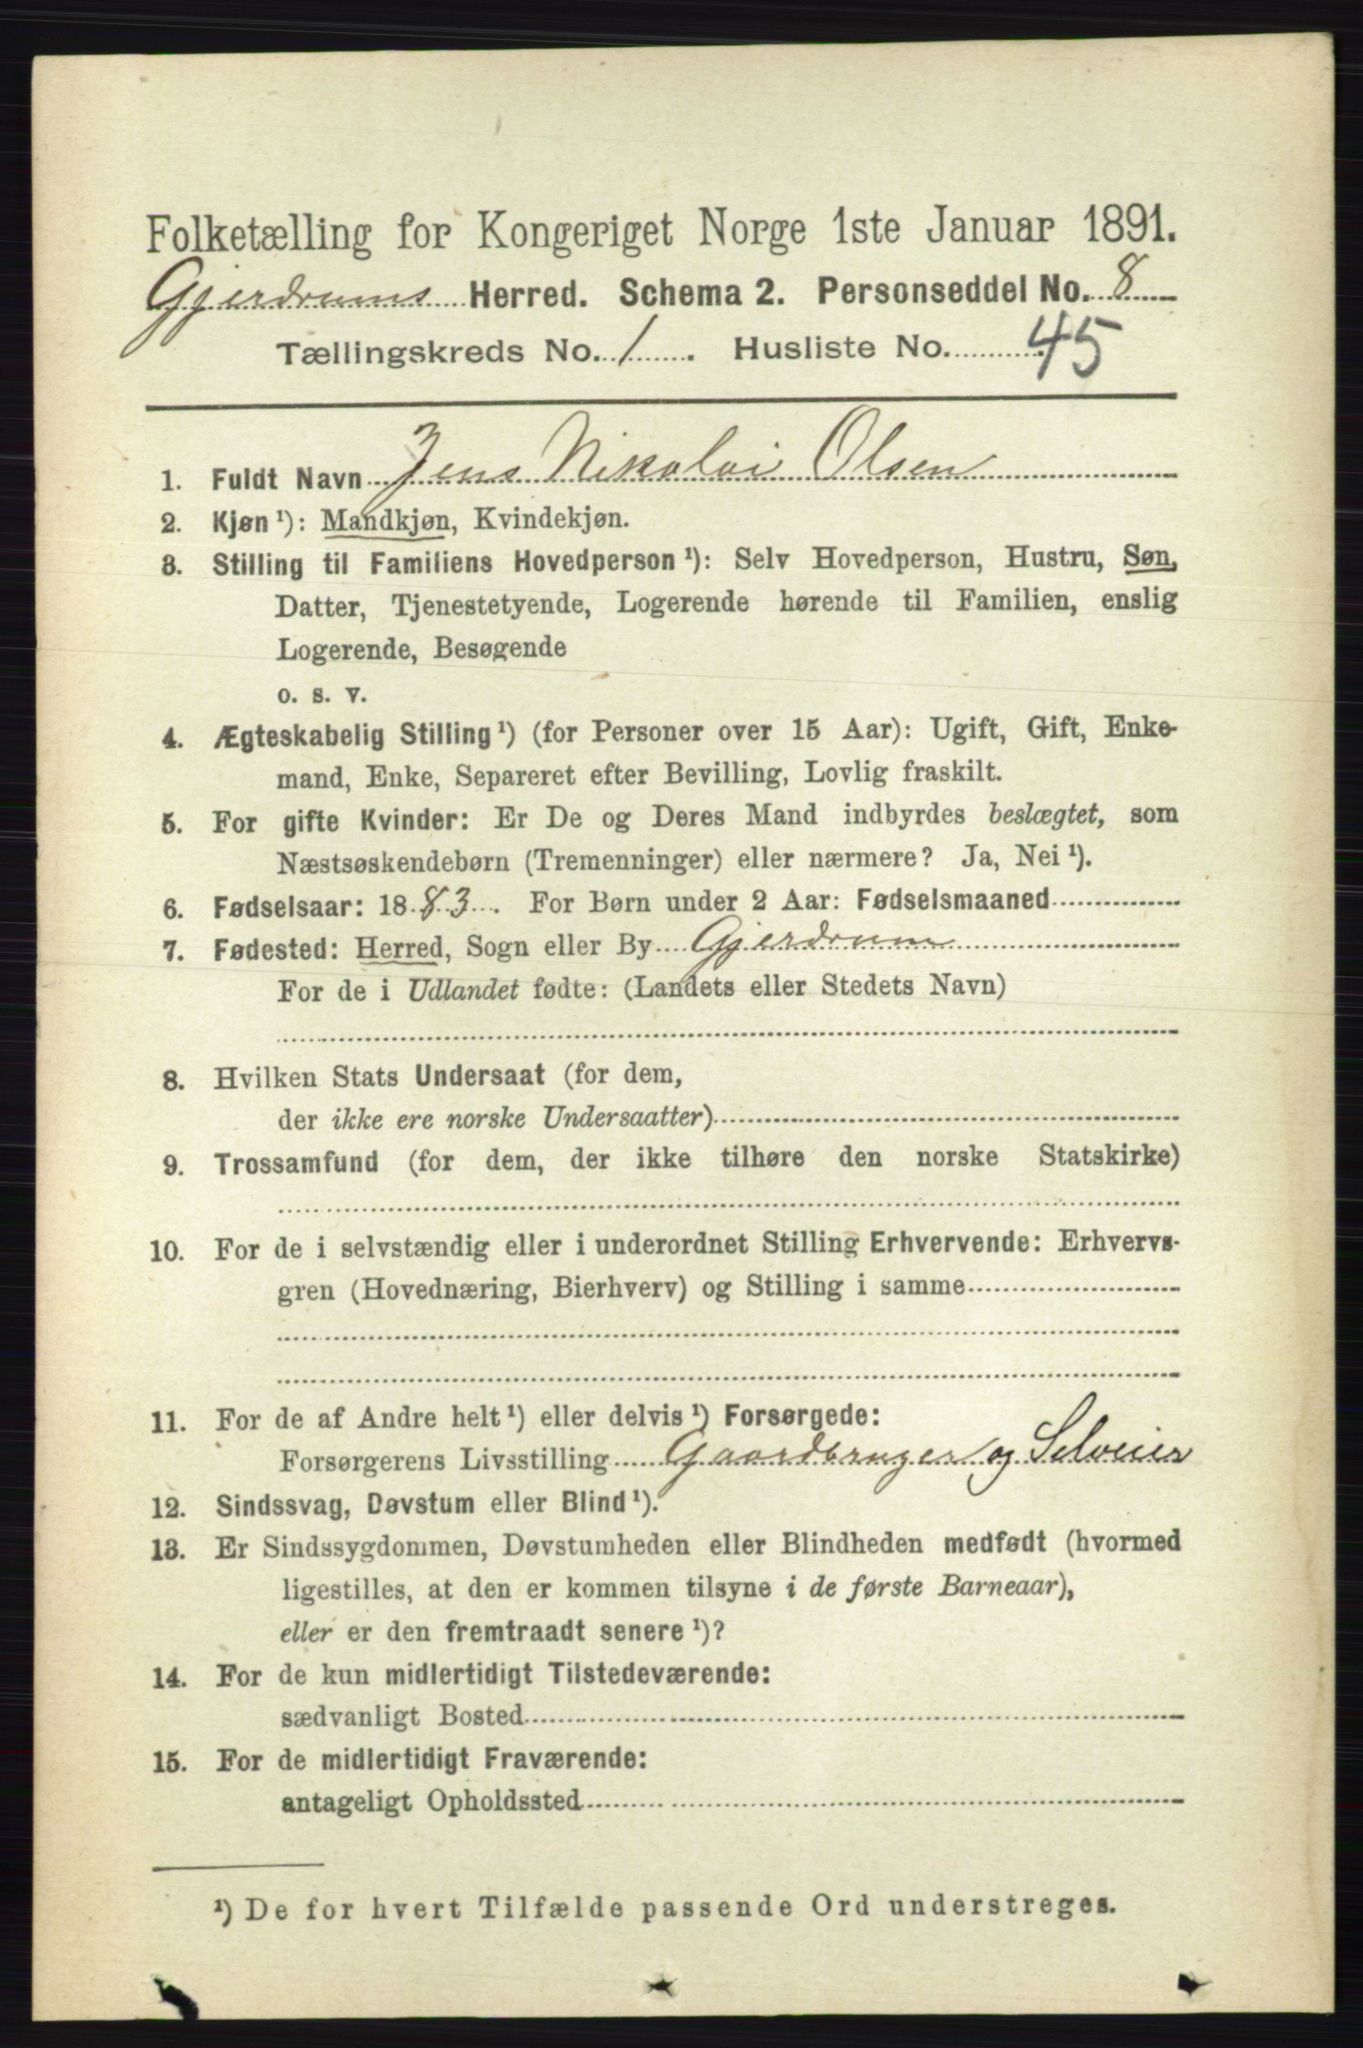 Folketælling for Kongeriget Norge 1ste Januar 1891.
Gjerdrums Herred. Schema 2. Personseddel No. 8
Tællingskreds No. 1. Husliste No. 45
1. Fuldt Navn Jens Nikolai Olsen
2. Kjøn ¹): Mandkjøn, Kvindekjøn.
3. Stilling til Familiens Hovedperson ¹): Selv Hovedperson, Hustru, Søn,
Datter, Tjenestetyende, Logerende hørende til Familien, enslig
Logerende, Besøgende
o. s. v.
4. Ægteskabelig Stilling ¹) (for Personer over 15 Aar): Ugift, Gift, Enke-
mand, Enke, Separeret efter Bevilling, Lovlig fraskilt.
5. For gifte Kvinder: Er De og Deres Mand indbyrdes beslægtet, som
Næstsøskendebørn (Tremenninger) eller nærmere? Ja, Nei ¹).
6. Fødselsaar: 1883. For Børn under 2 Aar: Fødselsmaaned
7. Fødested: Herred, Sogn eller By Gjerdrum
For de i Udlandet fødte: (Landets eller Stedets Navn)
8. Hvilken Stats Undersaat (for dem,
der ikke ere norske Undersaatter)
9. Trossamfund (for dem, der ikke tilhøre den norske Statskirke)
10. For de i selvstændig eller i underordnet Stilling Erhvervende: Erhvervs-
gren (Hovednæring, Bierhverv) og Stilling i samme
11. For de af Andre helt ¹) eller delvis ¹) Forsørgede:
Forsørgerens Livsstilling Gaardbruger og Selveier
12. Sindssvag, Døvstum eller Blind ¹).
13. Er Sindssygdommen, Døvstumheden eller Blindheden medfødt (hvormed
ligestilles, at den er kommen tilsyne i de første Barneaar),
eller er den fremtraadt senere ¹)?
14. For de kun midlertidigt Tilstedeværende:
sædvanligt Bosted
15. For de midlertidigt Fraværende:
antageligt Opholdssted
¹) De for hvert Tilfælde passende Ord understreges.